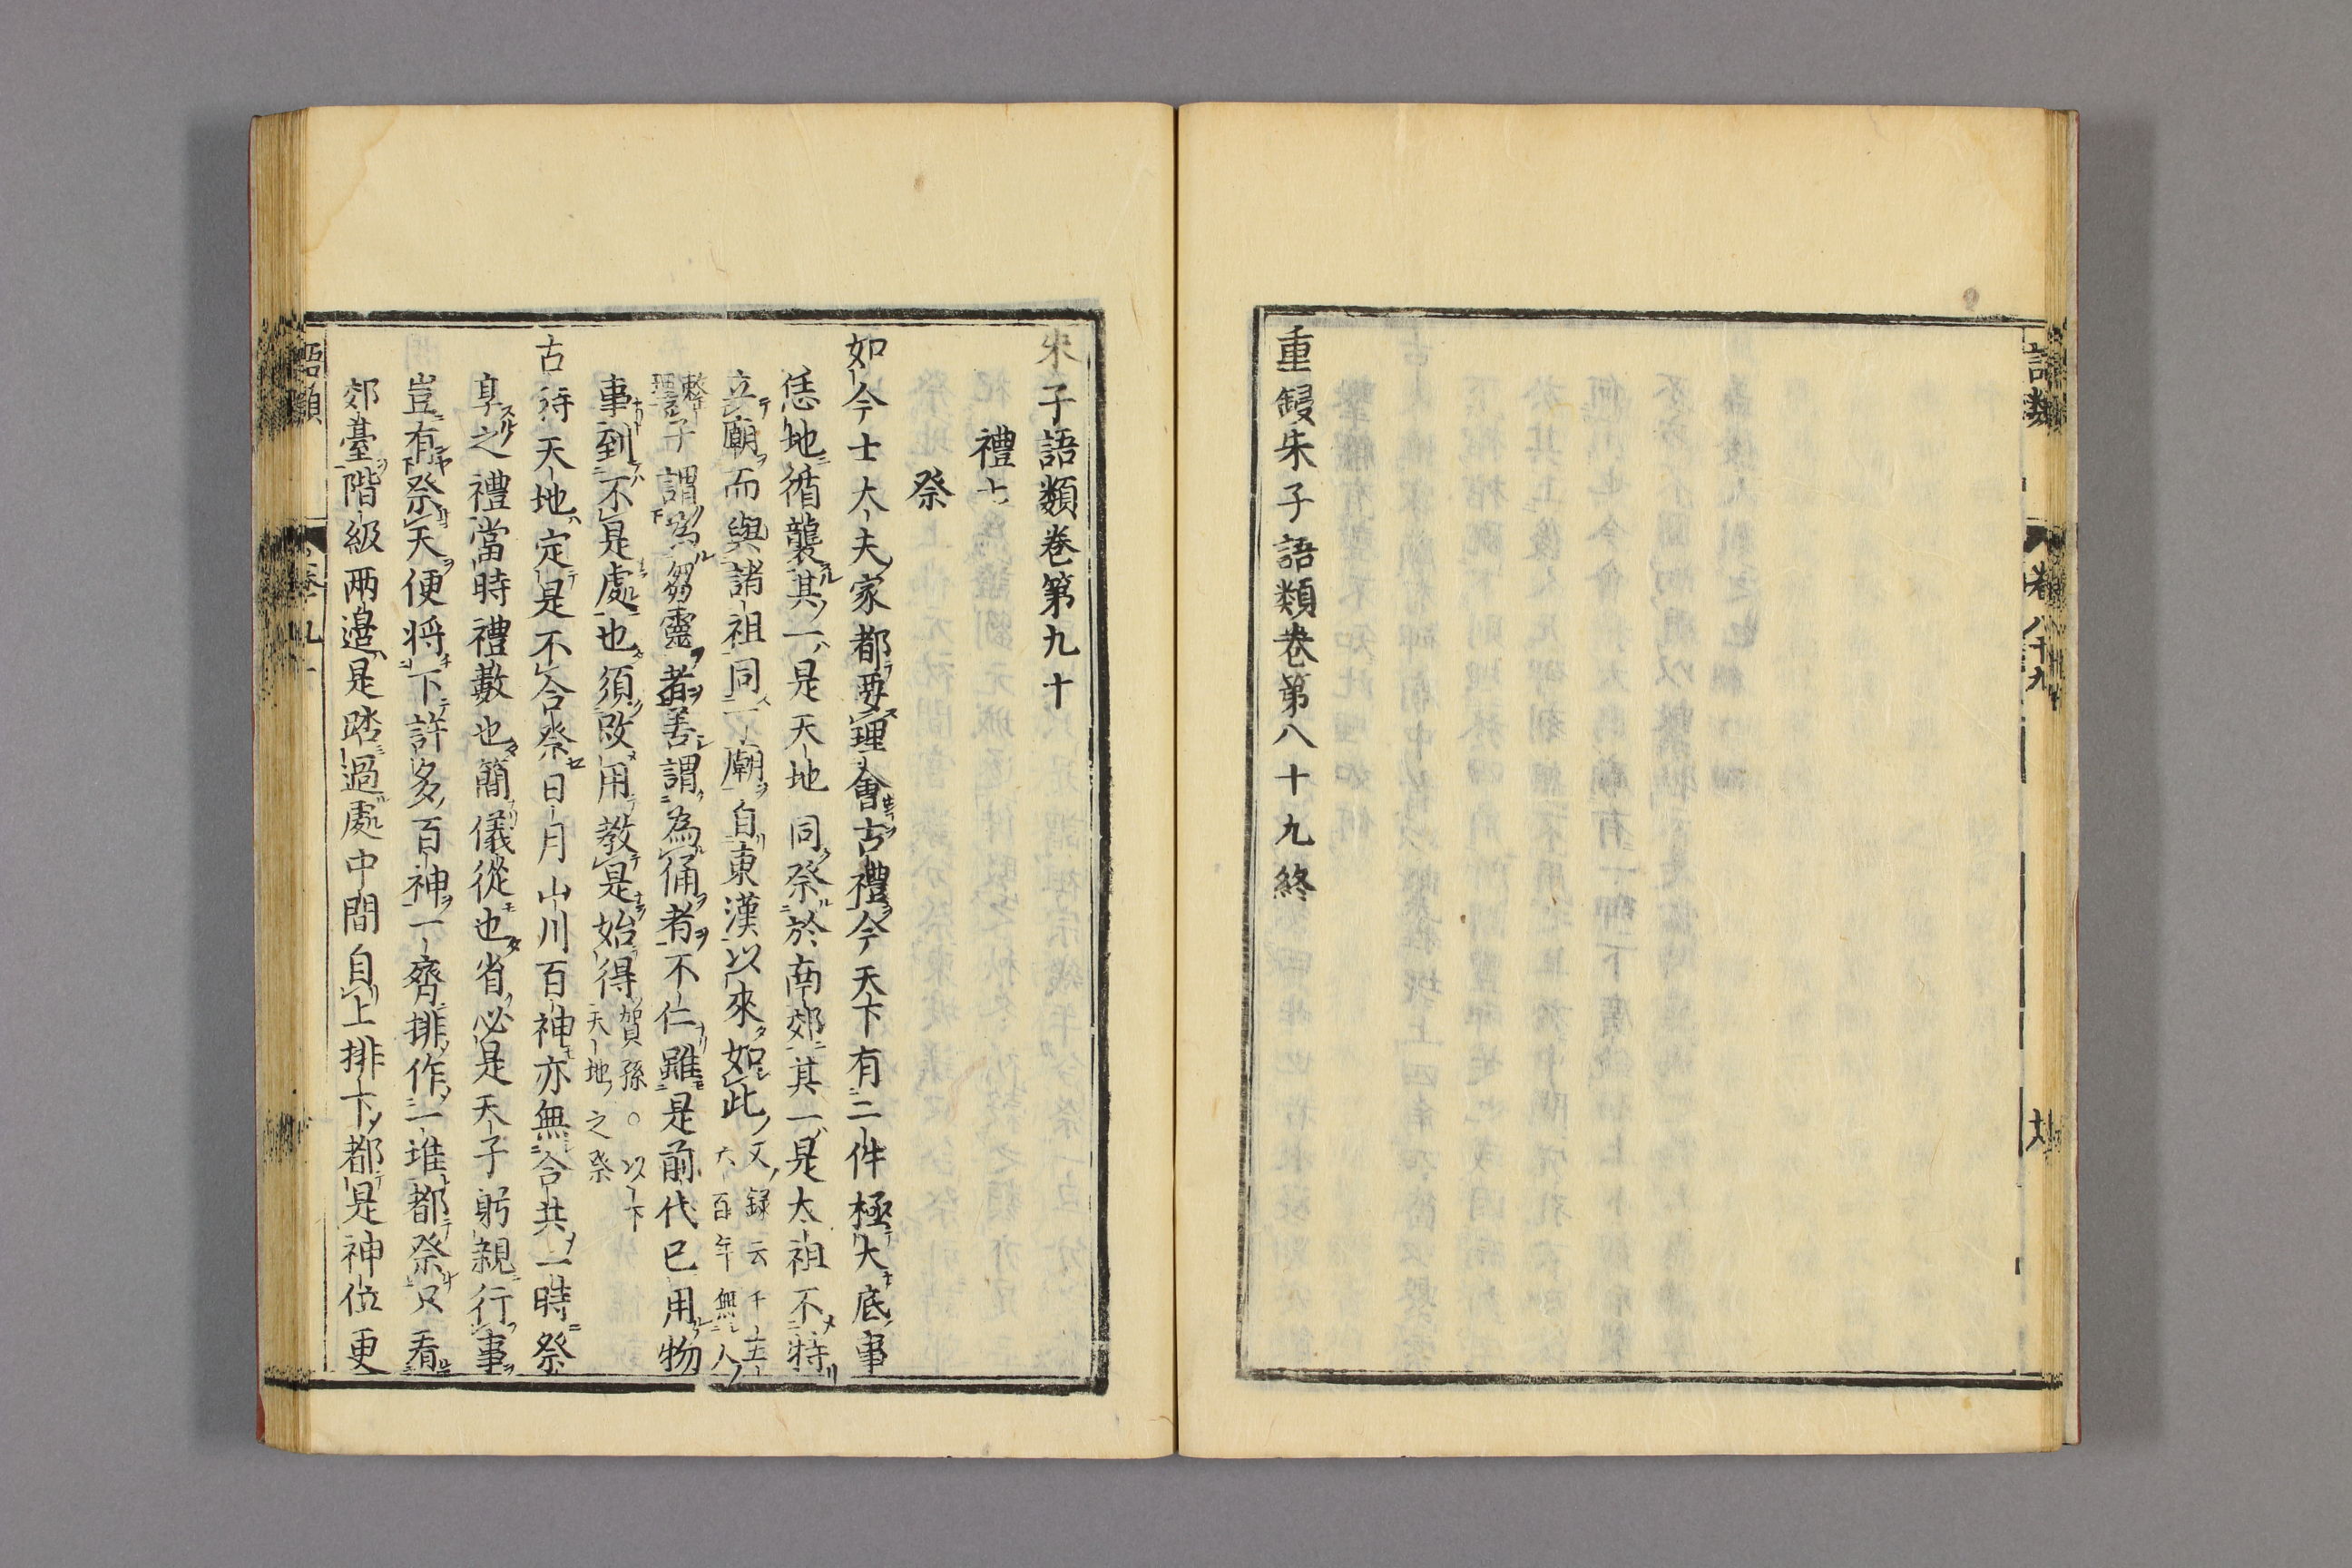 語類
卷八十九
重鋟朱子語類卷第八十九終
朱子語類卷第九十
禮七
祭
如今士大夫家都要理會古禮今天下有二件極大底事
恁地循襲其一是天地同祭於南郊其一是太祖不特
立廟而與諸祖同一廟自東漢以來如此文録云千五
六百年無人
整
理
孔子謂為芻靈者善謂為俑者不仁雖是前代已用物
事到不是處也須改用教是始得賀孫○以下
天地之祭
古時天地定是不合祭日月山川百神亦無合共一時祭
享之禮當時禮數也簡儀從也省必是天子躬親行事
豈有祭天便將下許多百神一齊排作一堆都祭只看
郊臺階級两邉是踏過處中間自上排下都是神位更
語類
卷九十